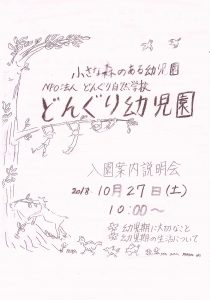 小さな森のある幼児園
NPO法人 どんぐり自然学校
どんぐり幼児園
入園案内説明会
2018 10月27日(土)
10:00～
幼児期に大切なこと
幼児期の生活について